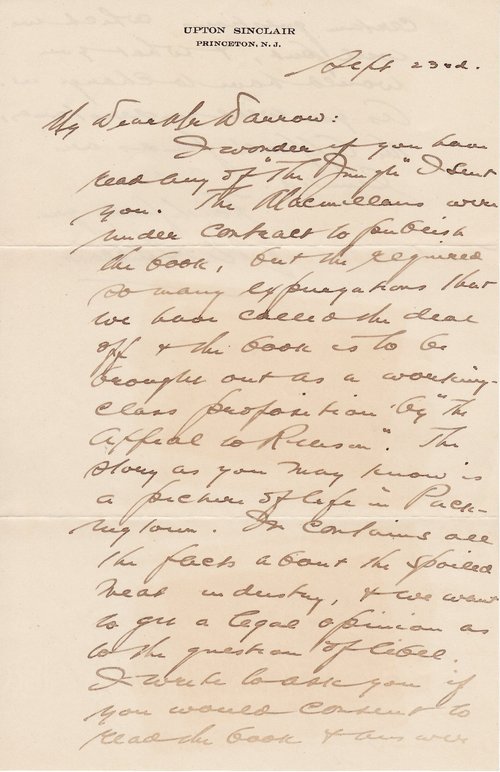 UPTON SINCLAIR
PRINCETON, N. J.
Sept 23rd.
My Dear Mr Darrow:
I wonder if you have
read any of "The Jungle" I sent
you. The Macmillans were
under contract to publish
the book, but the required
so many expurgations that
we have called the deal
off & the book is to be
brought out as a working-
class proposition by "The
Appeal to Reason". The
story as you may know is
a picture of life in Pack-
ingtown. It contains all
the facts about the spoiled
meat industry, & we want
to get a legal opinion as
to the question of libel.
I write to ask you if
you would consent to
read the book & answer